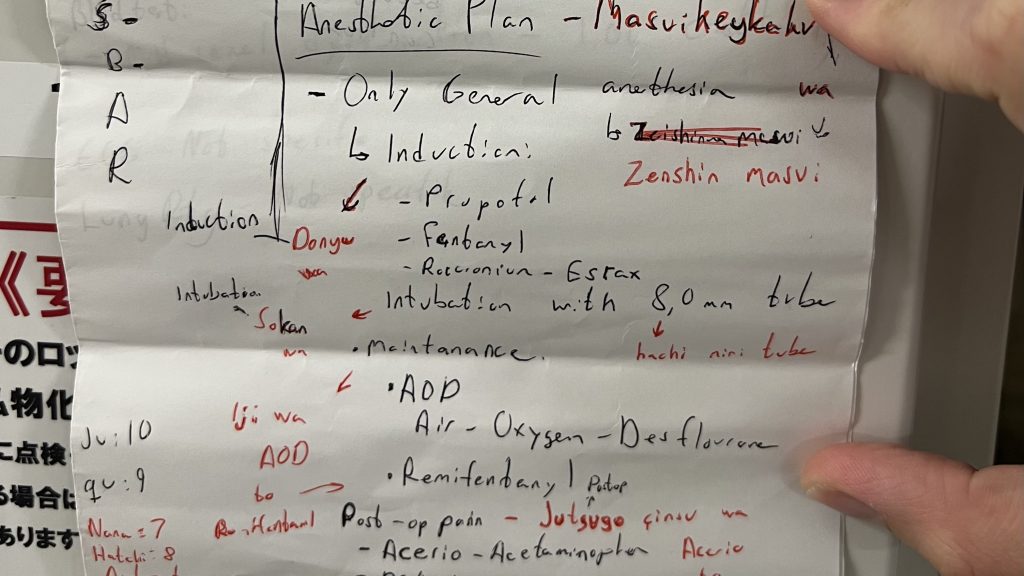 S-
B-
A
R
Anesthetic Plan - Masuikeykahu
- Only General anethesia wa
↳ Induction:
Zenshin masui
Induction
- Propofol
Donyu - Fentanyl
wa
- Rocuroniun - Eslax
Intubation
Intubation with 8,0 mm tube
Sokan
wa
hachi miri tube
• Maintanance.
• AOD
Iji wa
AOD
to
Air - Oxygen - Desflourane
• Remifentanyl
Postop
Ju: 10
qu: 9
Nana = 7
Hatchi: 8
Post-op pain - Jutsugo wa
- Acerio - Acetaminophen Acerio
のロッ
物化
に点検
場合は
あります